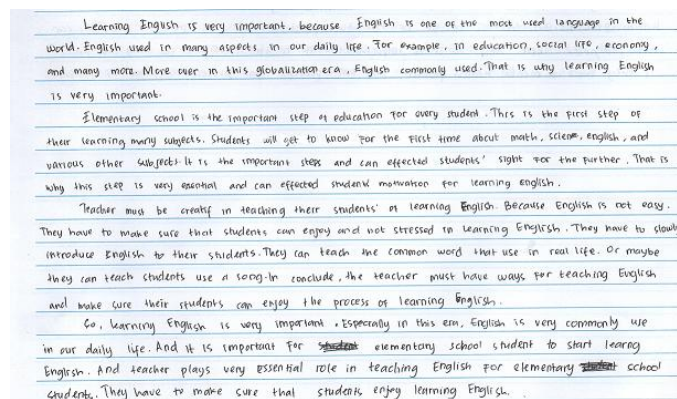 Learning English is very important, because English is one of the most used language in the
world. English used in many aspects in our daily life. For example, in education, social life, economy,
and many more. More over in this globalization era, English commonly used. That is why learning English
is very important.
Elementary school is the important step of education for every student. This is the first step of
their learning many subjects. Students will get to know for the first time about math, science, english, and
various other subjects. It is the important steps and can effected students' sight for the further. That is
why this step is very esential and can effected students' motivation for learning English.
Teacher must be creatif in teaching their students' of learning English. Because English is not easy.
They have to make sure that students can enjoy and not stressed in learning English. They have to slowly
introduce English to their students. They can teach the common word that use in real life. Or maybe
they can teach students use a song. In conclude, the teacher must have ways for teaching English
and make sure their students can enjoy the process of learning English.
So, learning English is very important. Especially in this era, English is very commonly use
in our daily life. And it is important for elementary school student to start learng
English. And teacher plays very essential role in teaching English for elementary school
students. They have to make sure that students enjoy learning English.